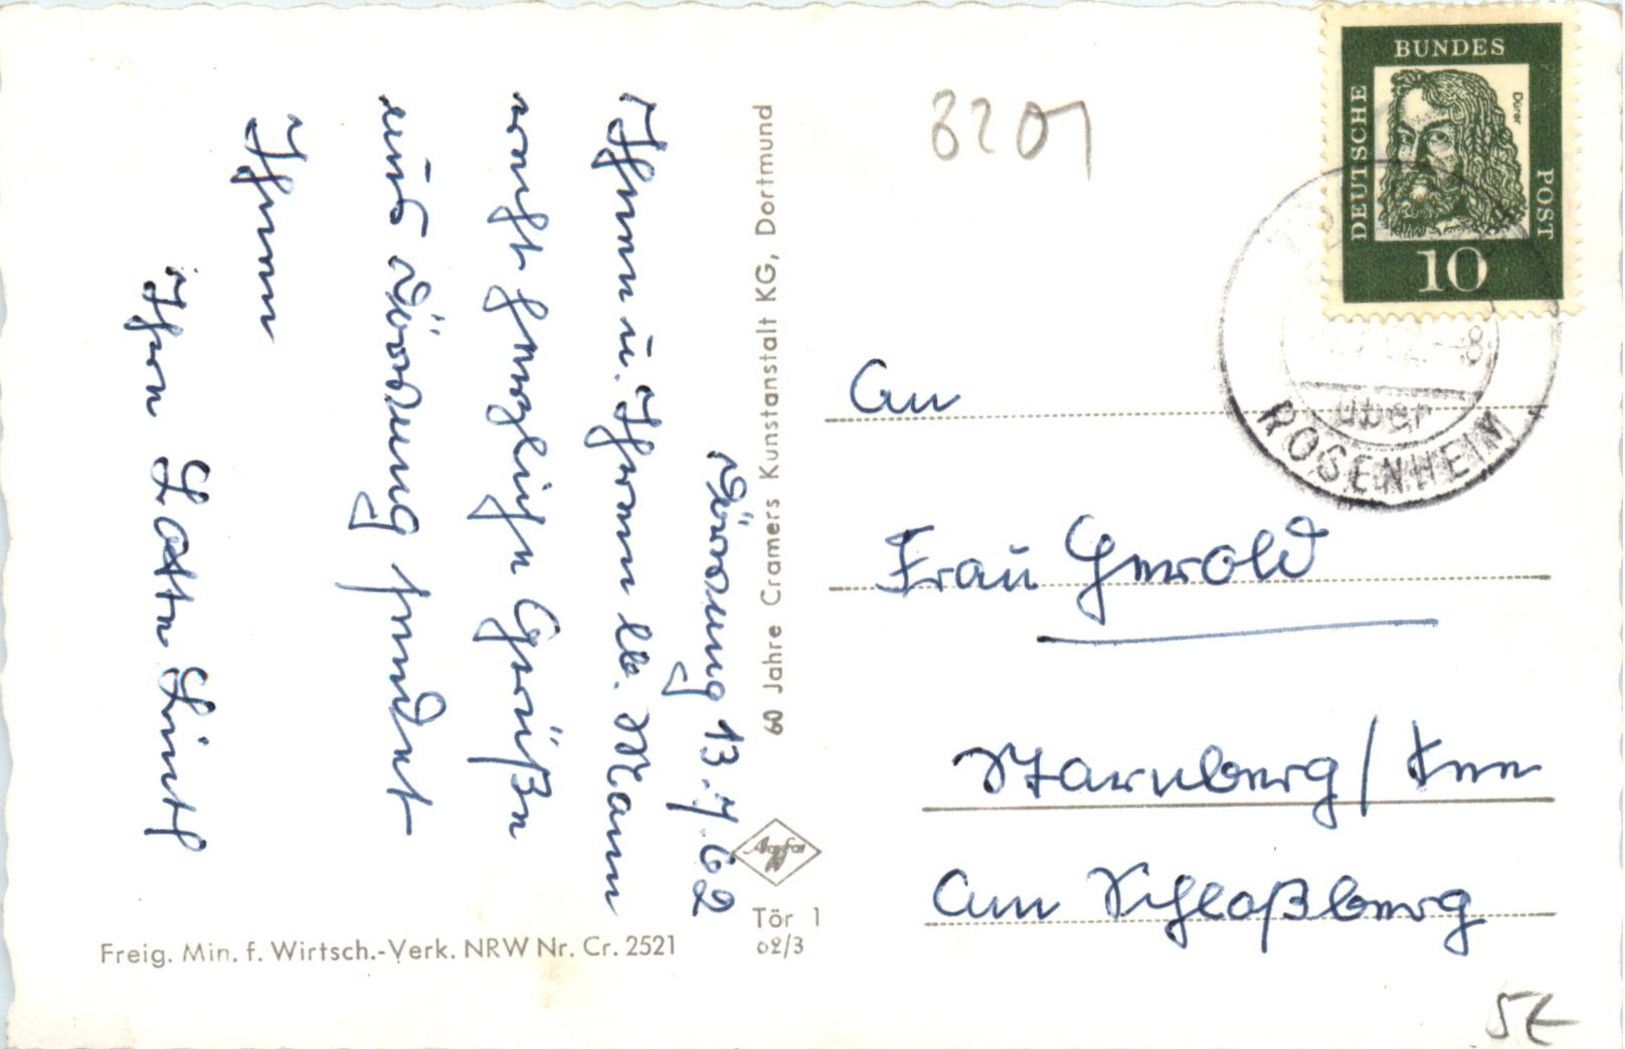 Törwang 13.7.62
Ihnen u. Ihrem lb. Mann
recht herzliche Grüße
aus Törwang sendet
Ihnen
Ihre Lotte
60 Jahre Cramers Kunstanstalt KG, Dortmund
Agfa
Tör 1
02/3
Freig. Min. f. Wirtsch.-Verk. NRW Nr. Cr. 2521
8201
DEUTSCHE BUNDES POST
Dürer
10
über
ROSENHEIM
An
Frau Gerold
Starnberg /
Am Schloßberg
5€